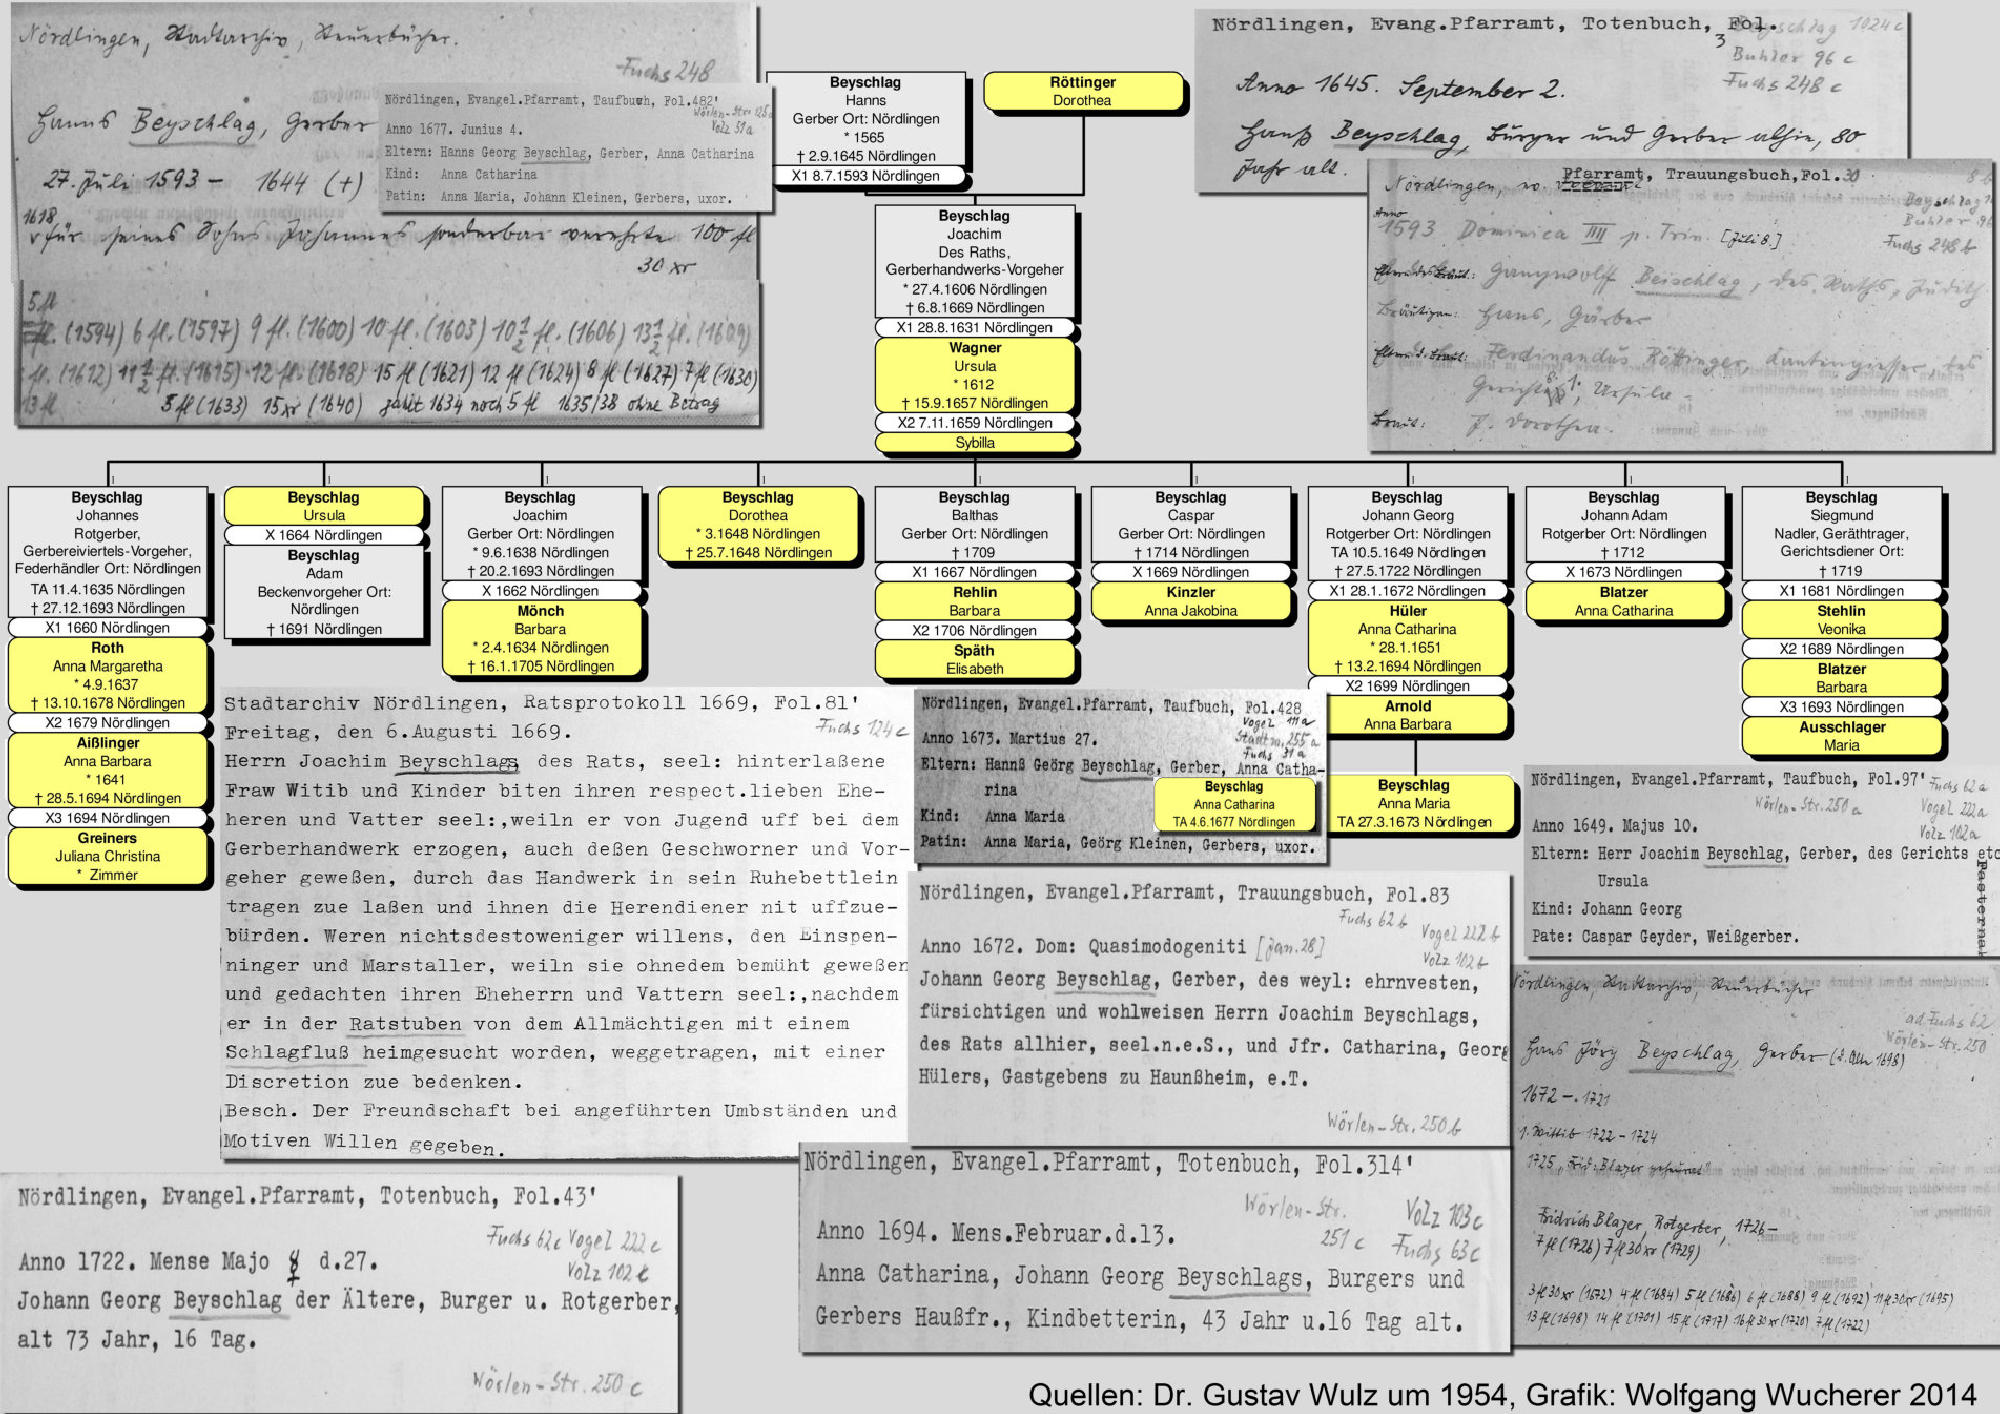 Nördlingen, Stadtarchiv, Steuerbücher.
Fuchs 248
Hanns Beyschlag, Gerber
27. Juli 1593 - 1644 (+)
1618
für seines Sohns Johannes sonderbar verehrte 100 fl
30 xr
5 fl
fl. (1594) 6 fl. (1597) 9 fl. (1600) 10 fl. (1603) 10 1/2 fl. (1606) 13 1/2 fl. (1609)
fl. (1612) 11 1/2 fl. (1615) 12 fl. (1618) 15 fl (1621) 12 fl (1624) 8 fl (1627) 7 fl (1630)
13 fl 5 fl (1633) 15 xr (1640) zahlt 1634 noch 5 fl 1635/38 ohne Betrag
Nördlingen, Evangel.Pfarramt, Taufbuch, Fol.482'
Wörlen-Str. 125a
Volz 51a
Anno 1677. Junius 4.
Eltern: Hanns Georg Beyschlag, Gerber, Anna Catharina
Kind: Anna Catharina
Patin: Anna Maria, Johann Kleinen, Gerbers, uxor.
Beyschlag
Hanns
Gerber Ort: Nördlingen
* 1565
† 2.9.1645 Nördlingen
X1 8.7.1593 Nördlingen
Röttinger
Dorothea
Nördlingen, Evang.Pfarramt, Totenbuch, Fol.
3
Beyschlag 1024c
Buhler 96 c
Fuchs 248 c
Anno 1645. September 2.
Hanß Beyschlag, Burger und Gerber alhie, 80
Jahr alt.
Nördlingen, Pfarramt, Trauungsbuch,Fol.30
Buhler 96
Fuchs 248 b
Anno
1593 Dominica IIII p. Trin. [Juli 8.]
Beischlag, des Raths, Judith
Bräutigam: Hans, Gärber
Ferdinandus Röttinger,
Gerichts
Braut: J. Dorothea.
Beyschlag
Joachim
Des Raths,
Gerberhandwerks-Vorgeher
* 27.4.1606 Nördlingen
† 6.8.1669 Nördlingen
X1 28.8.1631 Nördlingen
Wagner
Ursula
* 1612
† 15.9.1657 Nördlingen
X2 7.11.1659 Nördlingen
Sybilla
Beyschlag
Johannes
Rotgerber,
Gerbereiviertels-Vorgeher,
Federhändler Ort: Nördlingen
TA 11.4.1635 Nördlingen
† 27.12.1693 Nördlingen
X1 1660 Nördlingen
Roth
Anna Margaretha
* 4.9.1637
† 13.10.1678 Nördlingen
X2 1679 Nördlingen
Aißlinger
Anna Barbara
* 1641
† 28.5.1694 Nördlingen
X3 1694 Nördlingen
Greiners
Juliana Christina
* Zimmer
Beyschlag
Ursula
X 1664 Nördlingen
Beyschlag
Adam
Beckenvorgeher Ort:
Nördlingen
† 1691 Nördlingen
Beyschlag
Joachim
Gerber Ort: Nördlingen
* 9.6.1638 Nördlingen
† 20.2.1693 Nördlingen
X 1662 Nördlingen
Mönch
Barbara
* 2.4.1634 Nördlingen
† 16.1.1705 Nördlingen
Beyschlag
Dorothea
* 3.1648 Nördlingen
† 25.7.1648 Nördlingen
Beyschlag
Balthas
Gerber Ort: Nördlingen
† 1709
X1 1667 Nördlingen
Rehlin
Barbara
X2 1706 Nördlingen
Späth
Elisabeth
Beyschlag
Caspar
Gerber Ort: Nördlingen
† 1714 Nördlingen
X 1669 Nördlingen
Kinzler
Anna Jakobina
Beyschlag
Johann Georg
Rotgerber Ort: Nördlingen
TA 10.5.1649 Nördlingen
† 27.5.1722 Nördlingen
X1 28.1.1672 Nördlingen
Hüler
Anna Catharina
* 28.1.1651
† 13.2.1694 Nördlingen
X2 1699 Nördlingen
Arnold
Anna Barbara
Beyschlag
Anna Maria
TA 27.3.1673 Nördlingen
Beyschlag
Johann Adam
Rotgerber Ort: Nördlingen
† 1712
X 1673 Nördlingen
Blatzer
Anna Catharina
Beyschlag
Siegmund
Nadler, Geräthtrager,
Gerichtsdiener Ort:
† 1719
X1 1681 Nördlingen
Stehlin
Veonika
X2 1689 Nördlingen
Blatzer
Barbara
X3 1693 Nördlingen
Ausschlager
Maria
Stadtarchiv Nördlingen, Ratsprotokoll 1669, Fol.81'
Fuchs 124c
Freitag, den 6.Augusti 1669.
Herrn Joachim Beyschlags des Rats, seel: hinterlaßene
Fraw Witib und Kinder biten ihren respect.lieben Ehe-
heren und Vatter seel:,weiln er von Jugend uff bei dem
Gerberhandwerk erzogen, auch deßen Geschworner und Vor-
geher geweßen, durch das Handwerk in sein Ruhebettlein
tragen zue laßen und ihnen die Herendiener nit uffzue-
bürden. Weren nichtsdestoweniger willens, den Einspen-
ninger und Marstaller, weiln sie ohnedem bemüht geweßen
und gedachten ihren Eheherrn und Vattern seel:,nachdem
er in der Ratstuben von dem Allmächtigen mit einem
Schlagfluß heimgesucht worden, weggetragen, mit einer
Discretion zue bedenken.
Besch. Der Freundschaft bei angeführten Umbständen und
Motiven Willen gegeben.
Nördlingen, Evangel.Pfarramt, Taufbuch, Fol.428
Vogel 111a
Stadtm. 255a
Fuchs 31a
Anno 1673. Martius 27.
Eltern: Hannß Geörg Beyschlag, Gerber, Anna Catha-
rina
Kind: Anna Maria
Patin: Anna Maria, Geörg Kleinen, Gerbers, uxor.
Beyschlag
Anna Catharina
TA 4.6.1677 Nördlingen
Nördlingen, Evangel.Pfarramt, Taufbuch, Fol.97'
Fuchs 62a
Wörlen-Str. 250a
Vogel 222a
Volz 102a
Anno 1649. Majus 10.
Eltern: Herr Joachim Beyschlag, Gerber, des Gerichts etc
Ursula
Kind: Johann Georg
Pate: Caspar Geyder, Weißgerber.
Nördlingen, Evangel.Pfarramt, Trauungsbuch, Fol.83
Fuchs 62b
Vogel 222b
Volz 102b
Anno 1672. Dom: Quasimodogeniti [Jan.28]
Johann Georg Beyschlag, Gerber, des weyl: ehrnvesten,
fürsichtigen und wohlweisen Herrn Joachim Beyschlags,
des Rats allhier, seel.n.e.S., und Jfr. Catharina, Georg
Hülers, Gastgebens zu Haunßheim, e.T.
Wörlen-Str. 250b
Nördlingen, Stadtarchiv, Steuerbücher
ad Fuchs 62
Wörlen-Str. 250
Hans Jörg Beyschlag, Gerber
1672 - 1721
p. Wittib 1722 - 1724
1725
Fridrich Blazer, Rotgerber, 1726-
7 fl (1726) 7 fl 30 xr (1729)
3 fl 30 xr (1672) 4 fl (1684) 5 fl (1686) 6 fl (1688) 9 fl (1692) 11 fl 30 xr (1695)
13 fl (1698) 14 fl (1701) 15 fl (1717) 16 fl 30 xr (1720) 7 fl (1722)
Nördlingen, Evangel.Pfarramt, Totenbuch, Fol.43'
Fuchs 62c Vogel 222c
Volz 102c
Anno 1722. Mense Majo d.27.
Johann Georg Beyschlag der Ältere, Burger u. Rotgerber,
alt 73 Jahr, 16 Tag.
Wörlen-Str. 250 c
Nördlingen, Evangel.Pfarramt, Totenbuch, Fol.314'
Wörlen-Str.
251 c
Volz 103c
Fuchs 63c
Anno 1694. Mens.Februar.d.13.
Anna Catharina, Johann Georg Beyschlags, Burgers und
Gerbers Haußfr., Kindbetterin, 43 Jahr u.16 Tag alt.
Quellen: Dr. Gustav Wulz um 1954, Grafik: Wolfgang Wucherer 2014